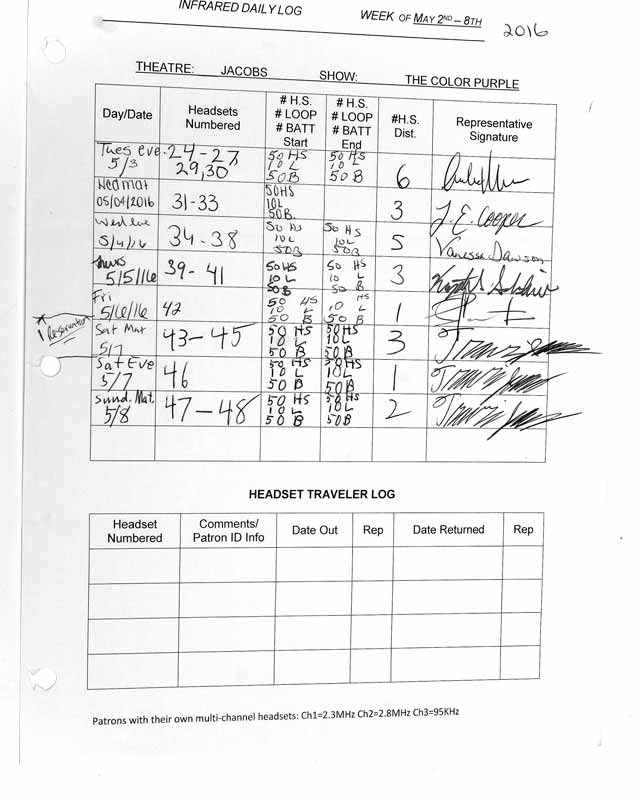 INFRARED DAILY LOG WEEK OF MAY 2ND – 8TH 2016
THEATRE: JACOBS SHOW: THE COLOR PURPLE
Day/Date Headsets Numbered # H.S. # LOOP # BATT Start # H.S. # LOOP # BATT End #H.S. Dist. Representative Signature
Tues eve 5/3 24-27, 29,30 50 HS 10 L 50 B 50 HS 10 L 50 B 6
Wed mat 05/04/2016 31-33 50HS 10L 50B. 3 J.E. Cooper
Wed eve 5/4/16 34-38 50 HS 10L 50B 50 HS 10L 50B 5 Vanessa Dawson
thurs 5/5/16 39-41 50HS 10 L 50B 50 HS 10 L 50 B 3
Fri 5/6/16 42 50 HS 10 L 50 B 50 HS 10 L 50 B 1
* 1 Reservation
Sat Mat 5/7 43-45 50 HS 10 L 50 B 50 HS 10 L 50 B 3
Sat Eve 5/7 46 50 HS 10 L 50 B 50 HS 10 L 50 B 1
Sund. Mat. 5/8 47-48 50 HS 10 L 50 B 50 HS 10 L 50B 2
HEADSET TRAVELER LOG
Headset Numbered Comments/ Patron ID Info Date Out Rep Date Returned Rep
Patrons with their own multi-channel headsets: Ch1=2.3MHz Ch2=2.8MHz Ch3=95KHz